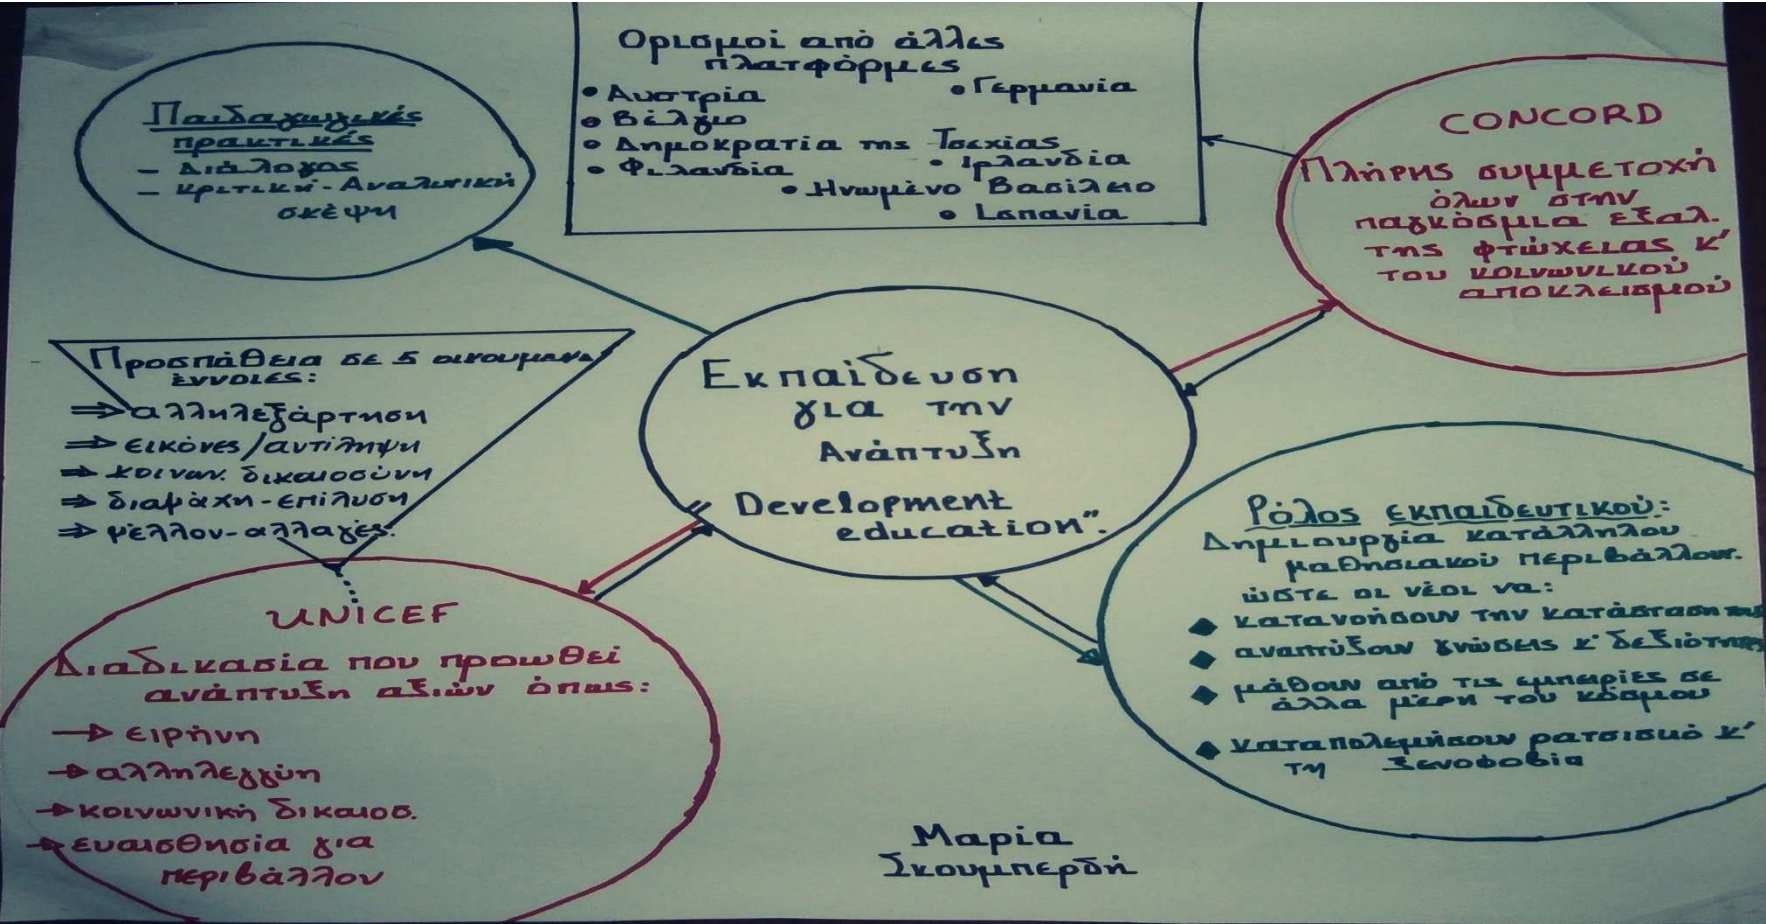 Παιδαγωγικές
πρακτικές
- Διάλογος
- Κριτική-Αναλυτική
σκέψη
Ορισμοί από άλλες
πλατφόρμες
• Αυστρία
• Γερμανία
• Βέλγιο
• Δημοκρατία της Τσεχίας
• Φιλανδία
• Ιρλανδία
• Ηνωμένο Βασίλειο
• Ισπανία
CONCORD
Πλήρης συμμετοχή
όλων στην
παγκόσμια εξαλ.
της φτώχειας κ'
του κοινωνικού
αποκλεισμού
Προσπάθεια σε 5 οικουμεν.
έννοιες:
⇒ αλληλεξάρτηση
⇒ εικόνες/αντίληψη
⇒ κοινων. δικαιοσύνη
⇒ διαμάχη-επίλυση
⇒ μέλλον-αλλαγές.
Εκπαίδευση
για την
Ανάπτυξη
"Development
education".
Ρόλος εκπαιδευτικού:
Δημιουργία κατάλληλου
μαθησιακού περιβάλλον.
ώστε οι νέοι να:
◆ κατανοήσουν την κατάσταση τους
◆ αναπτύξουν γνώσεις κ' δεξιότητες
◆ μάθουν από τις εμπειρίες σε
άλλα μέρη του κόσμου
◆ καταπολεμήσουν ρατσισμό κ'
τη ξενοφοβία
UNICEF
Διαδικασία που προωθεί
ανάπτυξη αξιών όπως:
→ ειρήνη
→ αλληλεγγύη
→ κοινωνική δικαιοσ.
→ ευαισθησία για
περιβάλλον
Μαρία
Σκουμπερδή